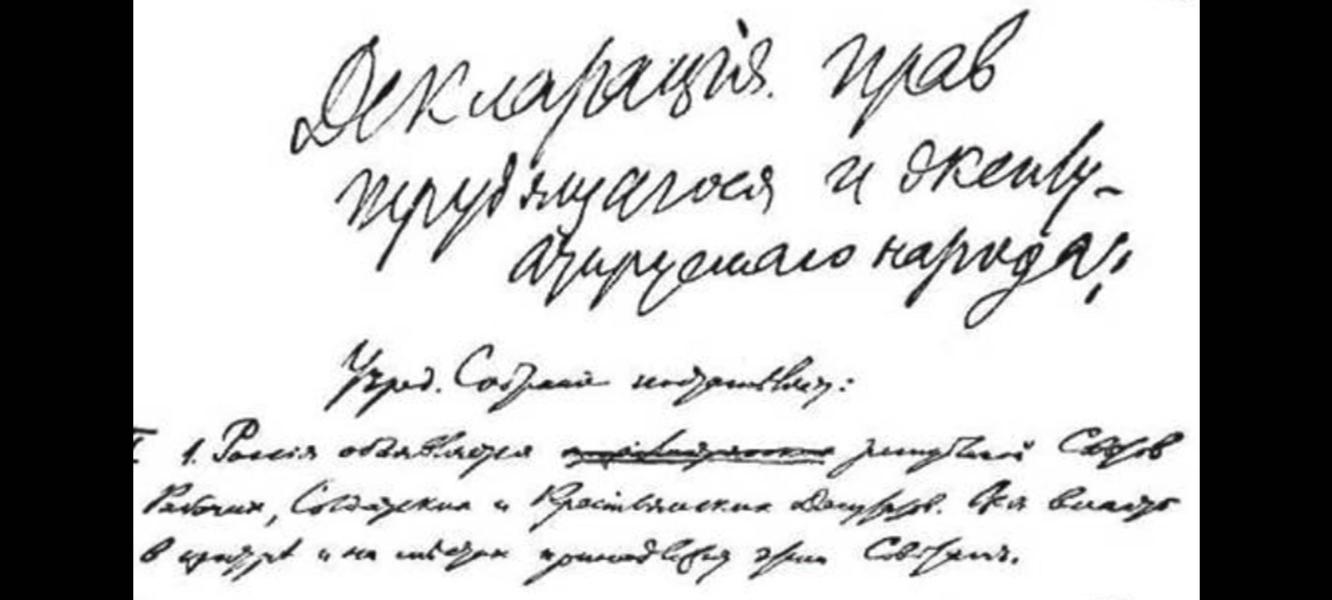 Декларація прав
трудящагося и эксплу-
атируемаго народа
Учред. Собраніе постановляет:
I. 1. Россія объявляется республикой Советов
Рабочих, Солдатских и Крестьянских Депутатов. Вся власть
в центре и на местах принадлежит этим Советам.